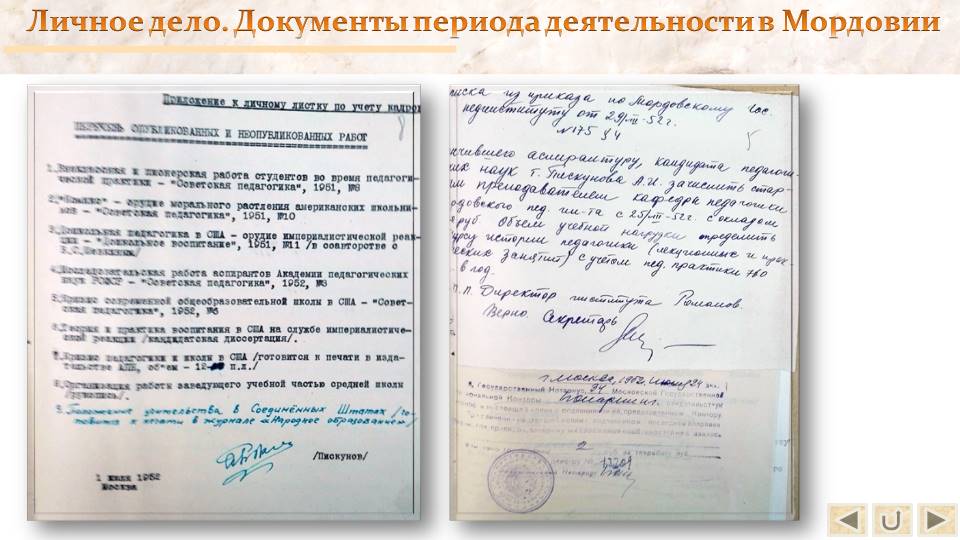 Личное дело. Документы периода деятельности в Мордовии
Приложение к личному листку по учету кадро
8
ПЕРЕЧЕНЬ ОПУБЛИКОВАННЫХ И НЕОПУБЛИКОВАННЫХ РАБОТ
1.Внеклассная и пионерская работа студентов во время педагоги-
ческой практики - "Советская педагогика", 1951, №8
2."Комикс" - орудие морального растления американских школьни-
ков - "Советская педагогика", 1951, №10
3.Дошкольная педагогика в США - орудие империалистической реак-
ции - "Дошкольное воспитание", 1951, №11 /в соавторстве с
4.Исследовательская работа аспирантов Академии педагогических
наук РСФСР - "Советская педагогика", 1952, №3
5.Кризис современной общеобразовательной школы в США - "Совет-
ская педагогика", 1952, №6
6.Теория и практика воспитания в США на службе империалистиче-
ской реакции /кандидатская диссертация/.
7.Кризис педагогики и школы в США /готовится к печати в изда-
тельстве АПН, об'ем - 12 п.л./
8.Организация работы заведующего учебной частью средней школы
/рукопись/.
9. Положение учительства в Соединённых Штатах /го-
товится к печати в журнале "Народное образование"/
/Пискунов/
1 июля 1952
Москва
иска из приказа по Мордовскому Гос.
пединституту от 29/VII-52 г.
№175 §4
нчившего аспирантуру, кандидата педагоги-
ких наук т. Пискунова А.И. зачислить стар-
им преподавателем кафедры педагогики
рдовского пед. ин-та с 25/VII-52 г. с окладом
руб. Объем учебной нагрузки определить
урсу истории педагогики (лекционных и прак-
ческих занятий) с учетом пед. практики 760
в год.
п.п. Директор института Романов.
Верно. Секретарь
г. Москва, 1952, июля 24 дня.
Государственный Нотариус, Московской Государственной
Нотариальной Конторы
2